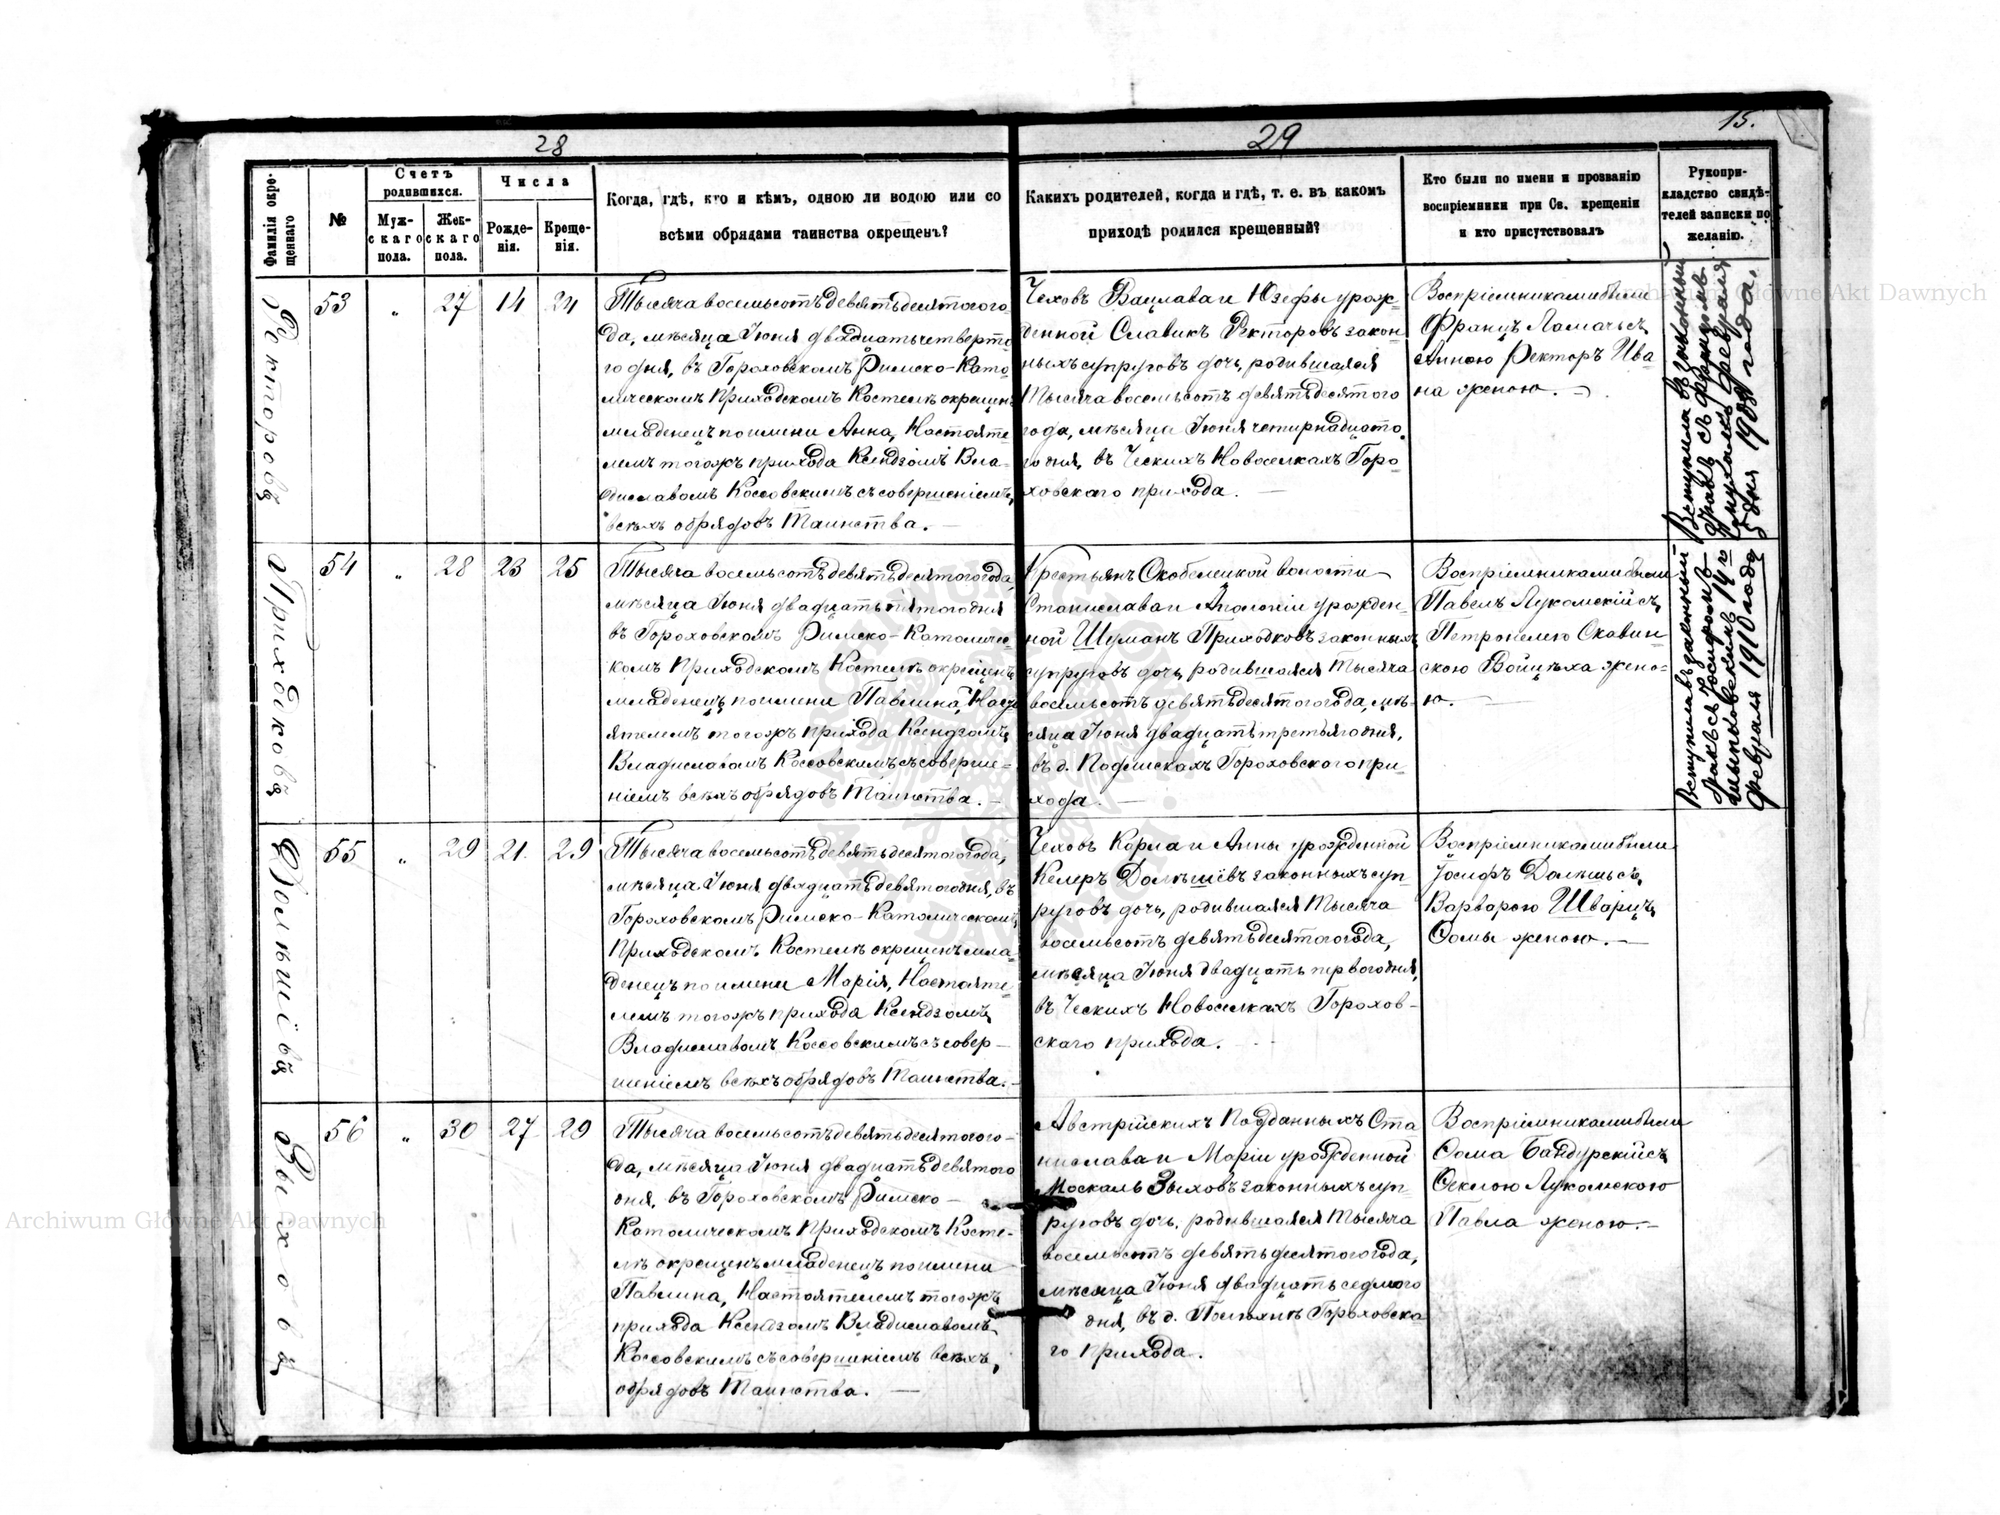 28
29
15.
Фамилія окре-
щеннаго
№
Счетъ
родившихся.
Муж-
скаго
пола.
Жен-
скаго
пола.
Числа
Рожде-
нія.
Креще-
нія.
Когда, гдѣ, кто и кѣмъ, одною ли водою или со
всѣми обрядами таинства окрещенъ?
Каихъ родителей, когда и гдѣ, т. е. въ какомъ
приходѣ родился крещенный?
Кто были по имени и прозванію
воспріемники при Св. крещеніи
и кто присутствовалъ
Рукопри-
кладство свидѣ-
телей записки по
желанію.
Ректоровъ
53
„
27
14
24
Тысяча восемьсотъ девятьдесятого го-
да, мѣсяца Іюня двадцать четверто-
го дня, въ Гороховскомъ Римско-Като-
лическомъ Приходскомъ Костелѣ окрещенъ
младенецъ по имени Анна, Настояте-
лемъ тогожъ прихода Ксендзомъ Вла-
диславомъ Коссовскимъ съ совершеніемъ
всѣхъ обрядовъ Таинства. —
Чеховъ Вацлава и Юзефы урож-
денной Славикъ Ректоровъ закон-
ныхъ супруговъ дочь, родившаяся
Тысяча восемьсотъ девятьдесятого
года, мѣсяца Іюня четирнадцато-
го дня, въ Ческихъ Новоселкахъ Горо-
ховскаго прихода. —
Воспріемниками были
Францъ Ламачъ съ
Анною Ректоръ Ива-
на женою. —
Вступила въ законный
бракъ съ
февраля
5 дня 1908 года.
Приходковъ
54
„
28
23
25
Тысяча восемьсотъ девятьдесятого года,
мѣсяца Іюня двадцать пятого дня
въ Гороховскомъ Римско-Католичес-
комъ Приходскомъ Костелѣ окрещенъ
младенецъ по имени Павлина, Насто-
ятелемъ тогожъ прихода Ксендзомъ
Владиславомъ Коссовскимъ съ соверше-
ніемъ всѣхъ обрядовъ Таинства. —
Крестьянъ Скобелецкой волости
Станислава и Аполоніи урожден-
ной Шуманъ Приходковъ законныхъ
супруговъ дочь, родившаяся Тысяча
восемьсотъ девятьдесятого года, мѣ-
сяца Іюня двадцать третьяго дня,
въ д. Подлискахъ Гороховского при-
хода. —
Воспріемниками были
Павелъ Лукомскій съ
Петронелею Скавин-
скою Войцѣха жено-
ю. —
Вступила въ законный
бракъ съ Іосифомъ
14-го
февраля 1910 года
Долѣшіёвъ
55
„
29
21.
29
Тысяча восемьсотъ девятьдесятого года,
мѣсяца Іюня двадцать девятого дня, въ
Гороховскомъ Римско-Католическомъ
Приходскомъ Костелѣ окрещенъ мла-
денецъ по имени Марія, Настояте-
лемъ тогожъ прихода Ксендзомъ
Владиславомъ Коссовскимъ съ совер-
шеніемъ всѣхъ обрядовъ Таинства. —
Чеховъ Карла и Анны урожденной
Келеръ Долѣшіёвъ законныхъ суп-
руговъ дочь, родившаяся Тысяча
восемьсотъ девятьдесятого года,
мѣсяца Іюня двадцать первого дня,
въ Ческихъ Новоселкахъ Горохов-
скаго прихода.
Воспріемниками были
Іосифъ Долѣшъ съ
Варварою Шварцъ
Ѳомы женою. —
Зыховъ
56
„
30
27
29
Тысяча восемьсотъ девятьдесятого го-
да, мѣсяца Іюня двадцать девятого
дня, въ Гороховскомъ Римско-
Католическомъ Приходскомъ Косте-
лѣ окрещенъ младенецъ по имени
Павлина, Настоятелемъ тогожъ
прихода Ксендзомъ Владиславомъ
Коссовскимъ съ совершеніемъ всѣхъ
обрядовъ Таинства. —
Австрійскихъ Подданныхъ Ста-
нислава и Маріи урожденной
Москаль Зыховъ законныхъ суп-
руговъ дочь, родившаяся Тысяча
восемьсотъ девятьдесятого года,
мѣсяца Іюня двадцать седмого
дня, въ д. Полюхнѣ Гороховска-
го прихода.
Воспріемниками были
Ѳома Бандурскій съ
Ѳеклою Лукомскою
Павла женою. —
Archiwum Główne Akt Dawnych
Archiwum Główne Akt Dawnych